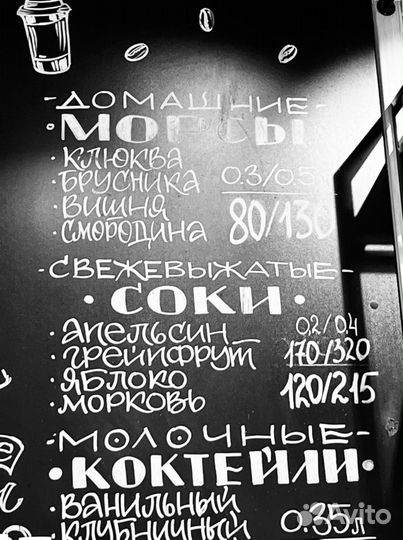 -ДОМАШНИЕ-
·МОРСЫ
·КЛЮКВА
·БРУСНИКА 0.3/0.5
·ВИШНЯ
·СМОРОДИНА 80/130
-СВЕЖЕВЫЖАТЫЕ-
·СОКИ·
·АПЕЛЬСИН_ 0,2/0,4
·ГРЕЙПФРУТ 170/320
·ЯБЛОКО
·МОРКОВЬ 120/215
-МОЛОЧНЫЕ-
·КОКТЕЙЛИ·
·ВАНИЛЬНЫЙ
·КЛУБНИЧНЫЙ 0.35л
Avito